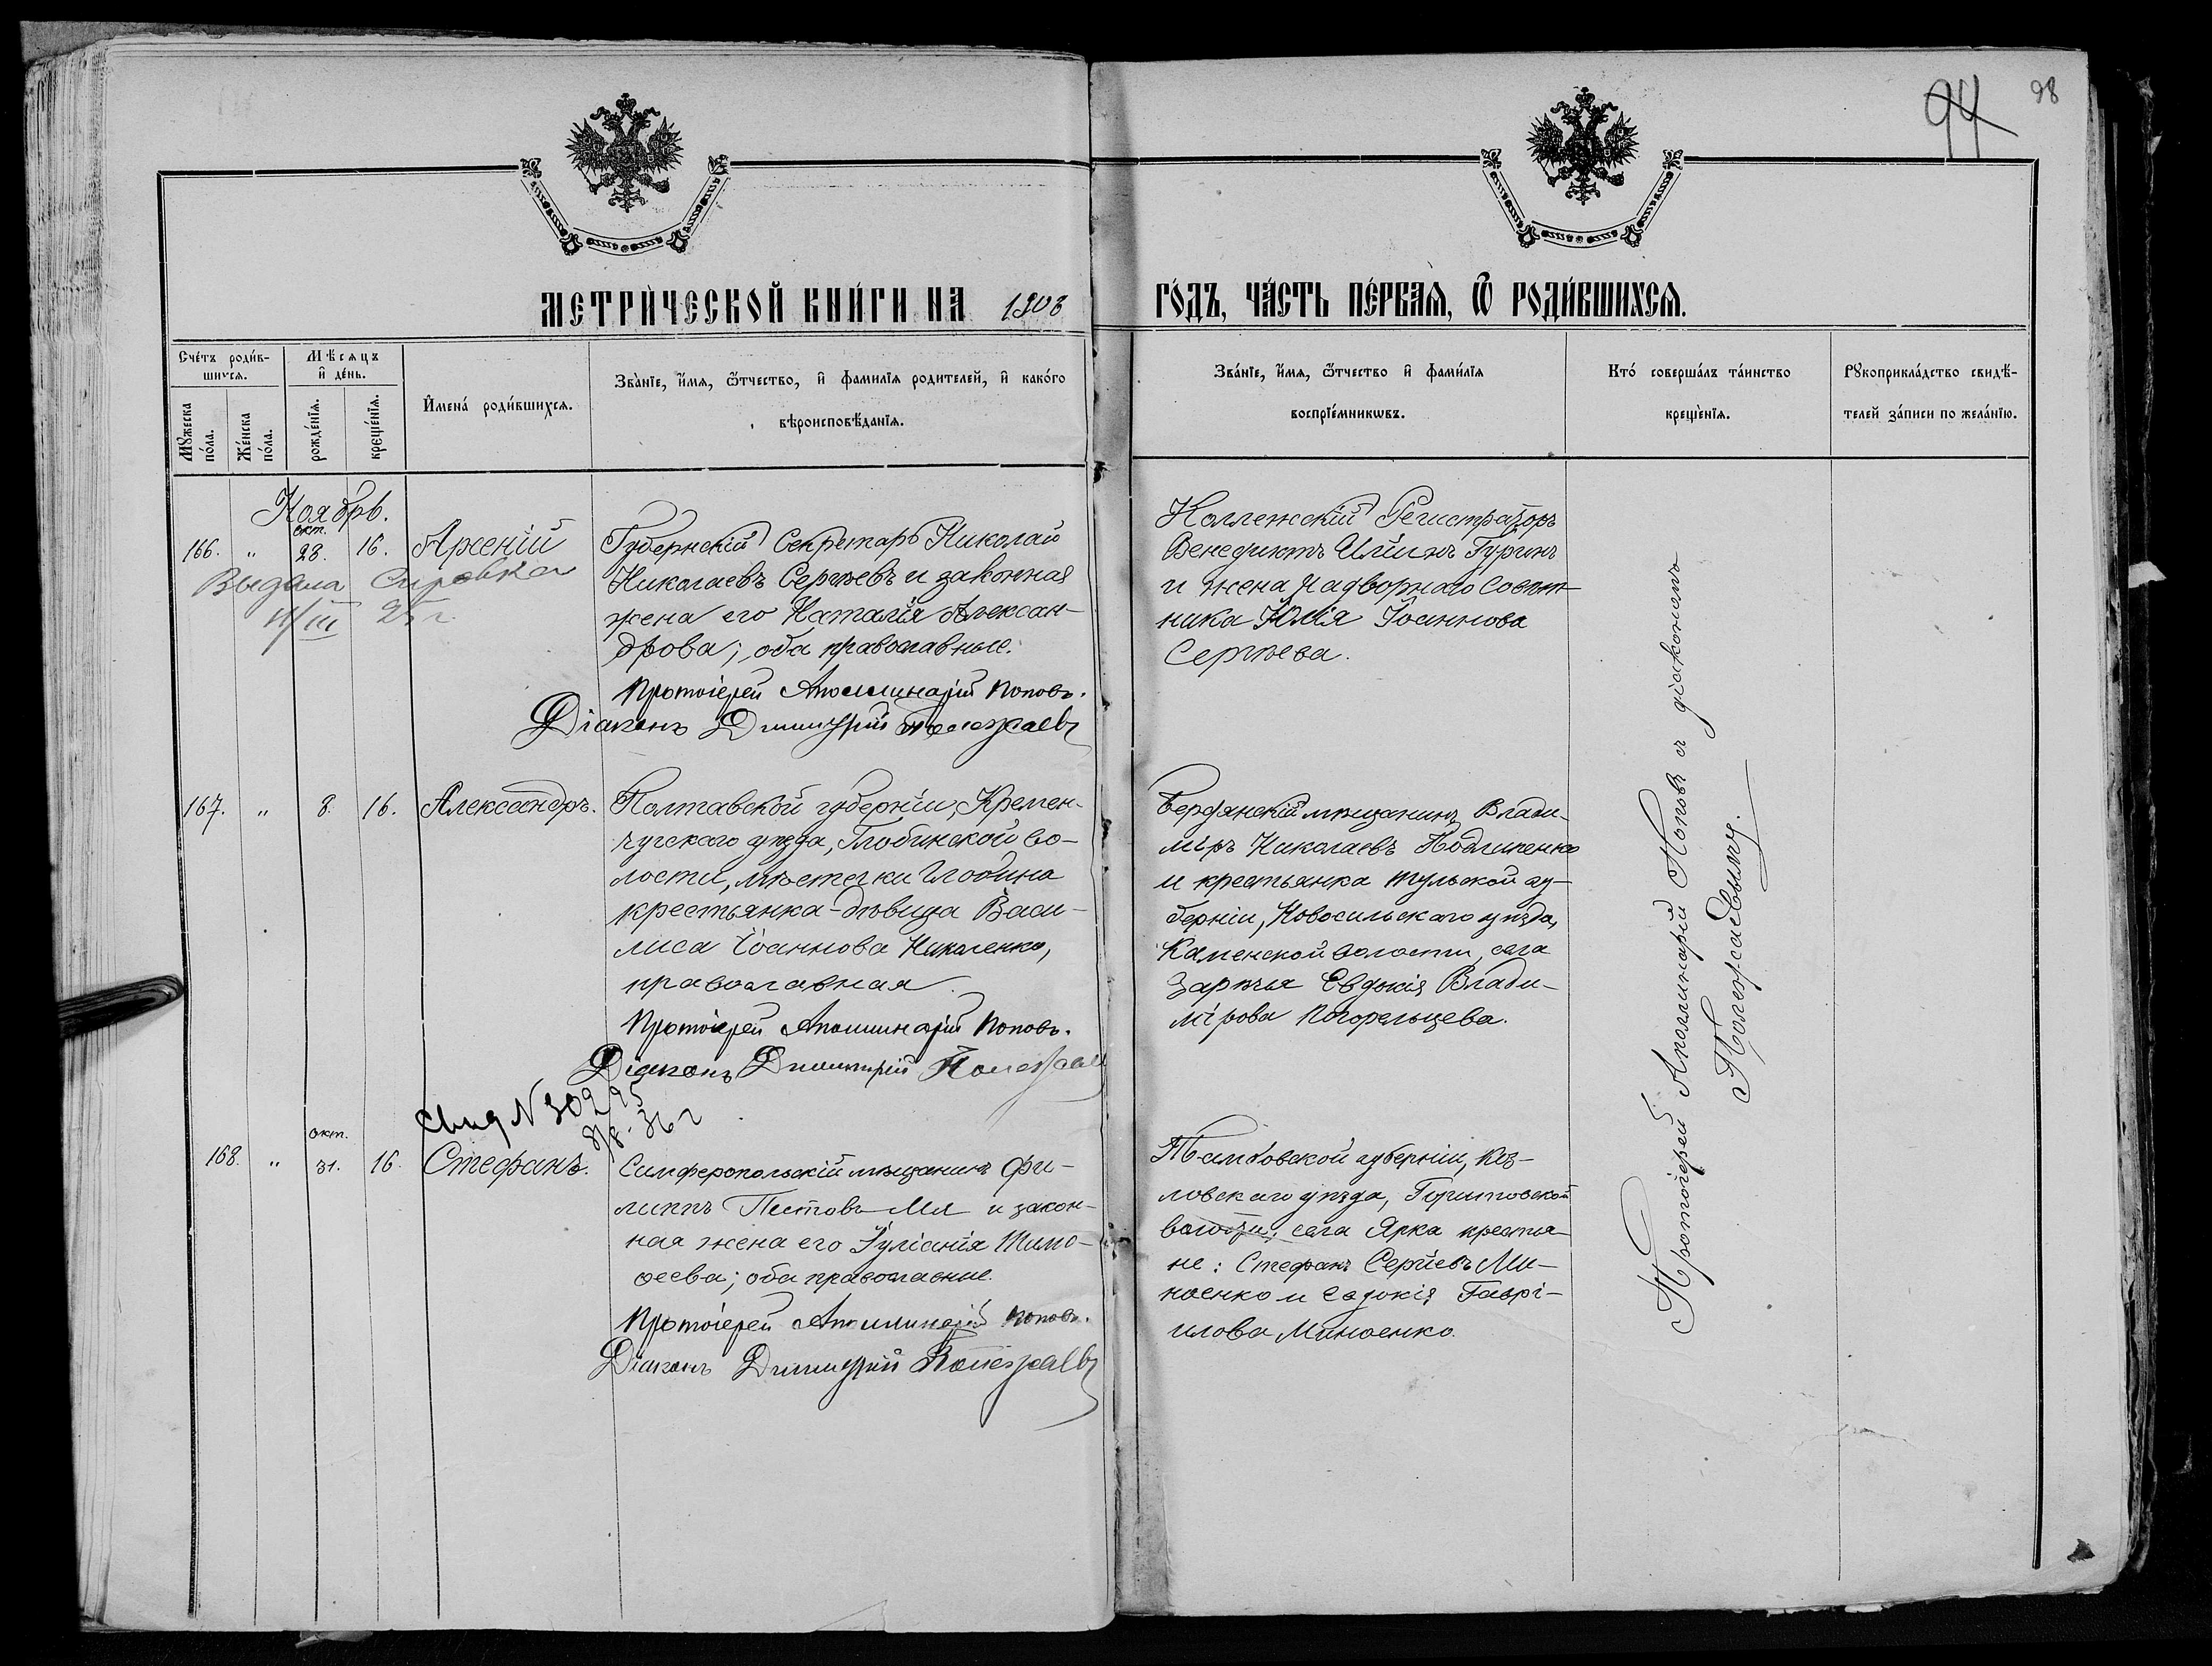 94
98
МЕТРИЧЕСКОЙ КНИГИ НА 1903
ГОДЪ, ЧАСТЬ ПЕРВАЯ, Ѿ РОДИВШИХСЯ.
Счетъ родив-
шихся.
Мѣсяцъ
и день.
Мужеска
пола.
Женска
пола.
рожденія.
крещенія.
Имена родившихся.
Званіе, имя, ѿтчество, и фамилія родителей, и какого
вѣроисповѣданія.
Званіе, имя, ѿтчество и фамилія
воспріемниковъ.
Кто совершалъ таинство
крещенія.
Рукоприкладство свидѣ-
телей записи по желанію.
Ноябрь.
окт.
166. " 28. 16. Арсеній
Выдана Справка
11/III 25 г.
Губернскій Секретарь Николай
Николаевъ Сергѣевъ и законная
жена его Наталія Алексан-
дрова; оба православные.
Протоіерей Аполлинарій Поповъ.
Діаконъ Димитрій Полежаевъ
Коллежскій Регистраторъ
Венедиктъ Ильинъ Гуринъ
и жена Надворнаго Совѣт-
ника Юлія Іоаннова
Сергѣева.
167. " 8. 16. Александръ.
Полтавской губерніи, Кремен-
чугскаго уѣзда, Глобинской во-
лости, мѣстечки Глобина
крестьянка-дѣвица Васи-
лиса Іоаннова Николенко,
православная.
Протоіерей Аполлинарій Поповъ.
Діаконъ Димитрій Полежаевъ
Бердянскій мѣщанинъ Влади-
міръ Николаевъ
и крестьянка Тульской гу-
берніи, Новосильскаго уѣзда,
Каменской волости, села
Зарѣчья Евдокія Влади-
мірова Погорельцева.
Свид N 30295
8/8 - 36 г
окт.
168. " 31. 16. Стефанъ.
Симферопольскій мѣщанинъ Фи-
липпъ и закон-
ная жена его Іуліанія Тимо-
ѳеева; оба православные.
Протоіерей Аполлинарій Поповъ.
Діаконъ Димитрій Полежаевъ
Тамбовской губерніи, Коз-
ловскаго уѣзда,
волости, села Ярка крестья-
не: Стефанъ Сергіевъ Ми-
ноенко и Евдокія Гаврі-
илова Миноенко.
Протоіерей Аполлинарій Поповъ съ діакономъ
Полежаевымъ.